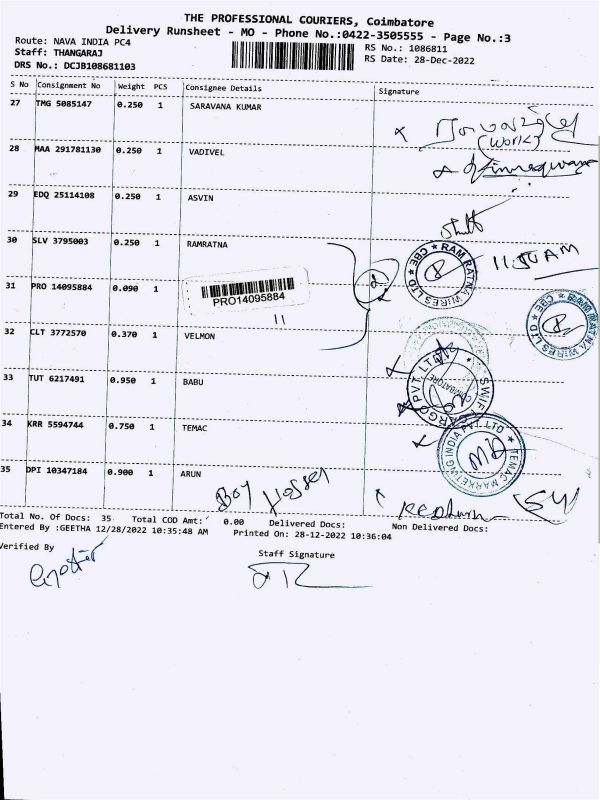 THE PROFESSIONAL COURIERS, Coimbatore
Delivery Runsheet - MO - Phone No.:0422-3505555 - Page No.:3
Route: NAVA INDIA PC4
RS No.: 1086811
Staff: THANGARAJ
RS Date: 28-Dec-2022
DRS No.: DCJB108681103
S No Consignment No Weight PCS Consignee Details Signature
27 TMG 5085147 0.250 1 SARAVANA KUMAR
(work)
28 MAA 291781130 0.250 1 VADIVEL
29 EDQ 25114108 0.250 1 ASVIN
30 SLV 3795003 0.250 1 RAMRATNA
RAM RATNA WIRES LTD ★ CBE ★
11.50 AM
31 PRO 14095884 0.090 1
PRO14095884
11
2
RAM RATNA WIRES LTD ★ CBE ★
32 CLT 3772570 0.370 1 VELMON
33 TUT 6217491 0.950 1 BABU
COIMBATORE
34 KRR 5594744 0.750 1 TEMAC
TEMAC MARKETING INDIA PVT LTD ★
35 DPI 10347184 0.900 1 ARUN
Total No. Of Docs: 35 Total COD Amt: 0.00 Delivered Docs: Non Delivered Docs:
Entered By :GEETHA 12/28/2022 10:35:48 AM Printed On: 28-12-2022 10:36:04
Verified By
Staff Signature